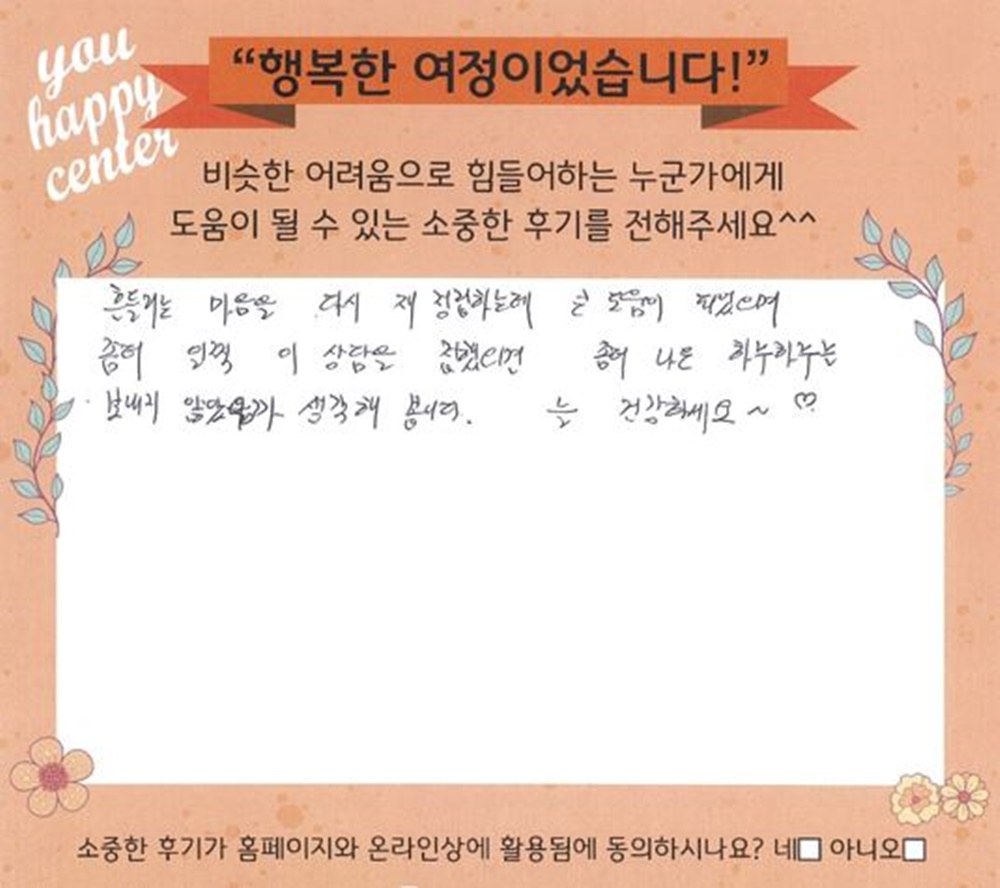 you
happy
center
“행복한 여정이었습니다!”
비슷한 어려움으로 힘들어하는 누군가에게
도움이 될 수 있는 소중한 후기를 전해주세요^^
흔들리는 마음을 다시 재 정립하는데 큰 도움이 되었으며
좀더 일찍 이 상담을 접했으면 좀더 나은 하루하루를
보내지 않았을까 생각해 봅니다. 늘 건강하세요~ ♡
소중한 후기가 홈페이지와 온라인상에 활용됨에 동의하시나요? 네□ 아니오□